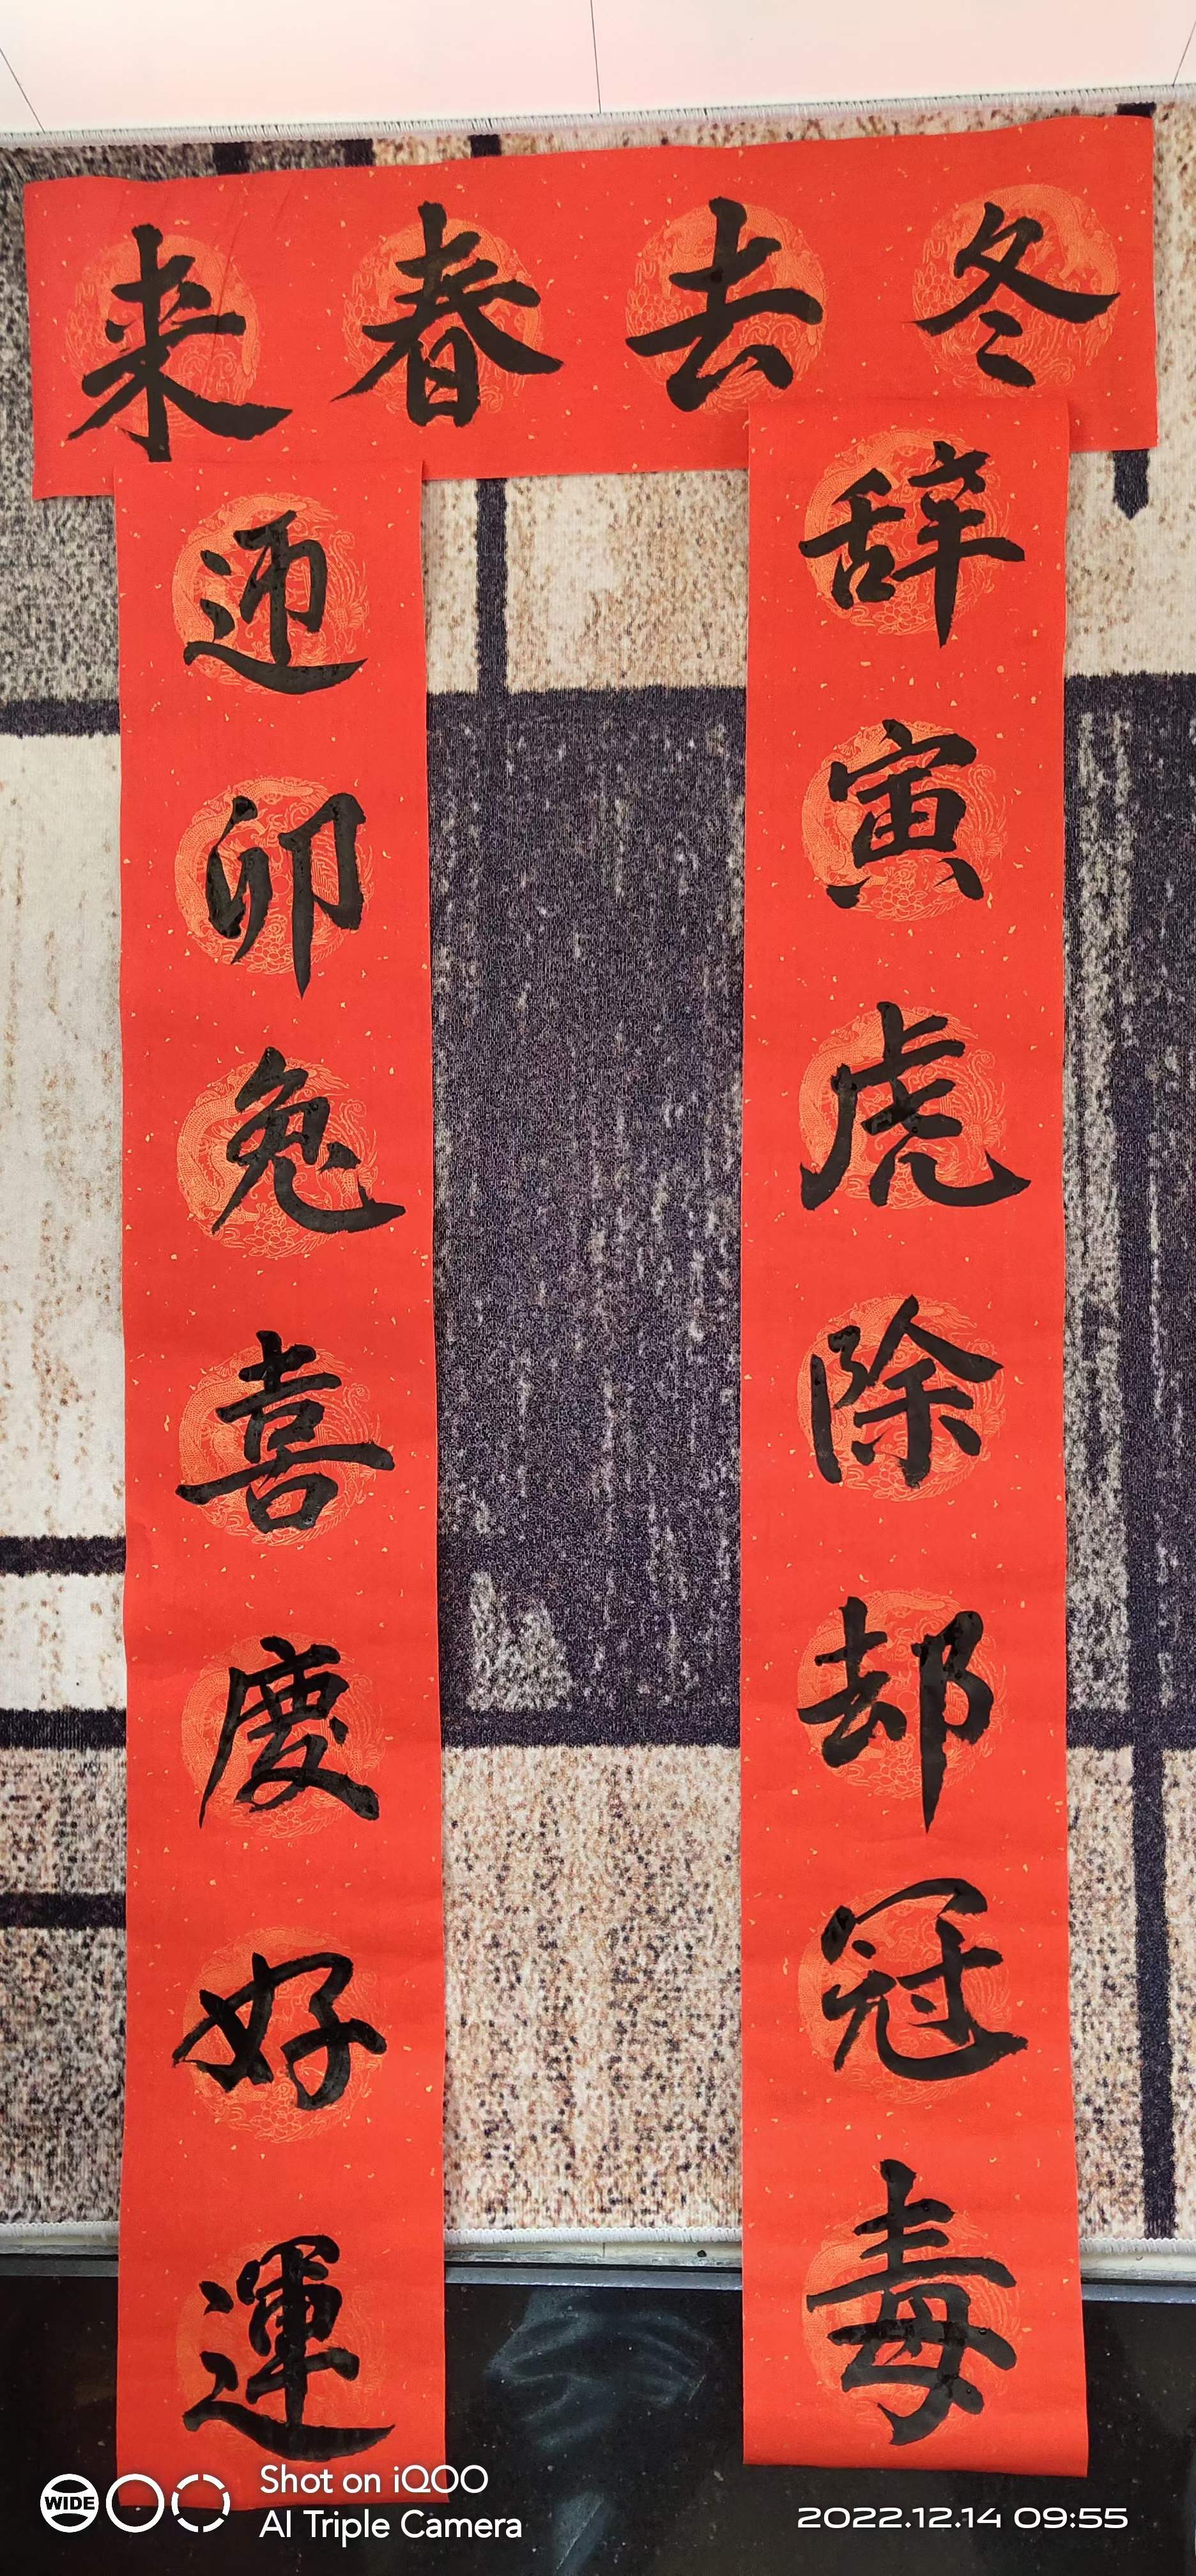 冬去春来
辞寅虎除却冠毒
迎卯兔喜慶好運
WIDE
Shot on iQOO
AI Triple Camera
2022.12.14 09:55